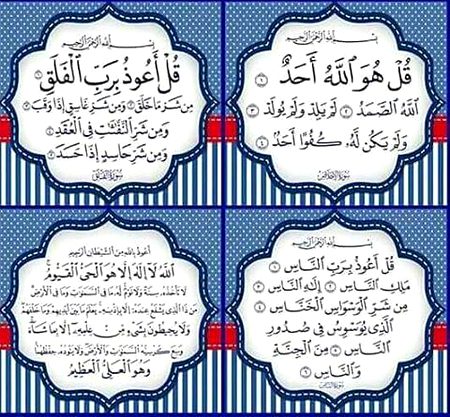 بِسْمِ اللَّهِ الرَّحْمَٰنِ الرَّحِيمِ
قُلْ هُوَ ٱللَّهُ أَحَدٌ ١
ٱللَّهُ ٱلصَّمَدُ ٢ لَمْ يَلِدْ وَلَمْ يُولَدْ ٣
وَلَمْ يَكُن لَّهُۥ كُفُوًا أَحَدٌۢ ٤
سُورَةُ الإِخْلَاص
بِسْمِ اللَّهِ الرَّحْمَٰنِ الرَّحِيمِ
قُلْ أَعُوذُ بِرَبِّ ٱلْفَلَقِ ١
مِن شَرِّ مَا خَلَقَ ٢ وَمِن شَرِّ غَاسِقٍ إِذَا وَقَبَ ٣
وَمِن شَرِّ ٱلنَّفَّٰثَٰتِ فِى ٱلْعُقَدِ ٤
وَمِن شَرِّ حَاسِدٍ إِذَا حَسَدَ ٥
سُورَةُ الفَلَق
بِسْمِ اللَّهِ الرَّحْمَٰنِ الرَّحِيمِ
قُلْ أَعُوذُ بِرَبِّ ٱلنَّاسِ ١
مَلِكِ ٱلنَّاسِ ٢ إِلَٰهِ ٱلنَّاسِ ٣
مِن شَرِّ ٱلْوَسْوَاسِ ٱلْخَنَّاسِ ٤
ٱلَّذِى يُوَسْوِسُ فِى صُدُورِ
ٱلنَّاسِ ٥ مِنَ ٱلْجِنَّةِ
وَٱلنَّاسِ ٦
سُورَةُ النَّاس
أَعُوذُ بِاللَّهِ مِنَ الشَّيْطَانِ الرَّجِيمِ
ٱللَّهُ لَآ إِلَٰهَ إِلَّا هُوَ ٱلْحَىُّ ٱلْقَيُّومُ
لَا تَأْخُذُهُۥ سِنَةٌ وَلَا نَوْمٌ لَّهُۥ مَا فِى ٱلسَّمَٰوَٰتِ وَمَا فِى ٱلْأَرْضِ
مَن ذَا ٱلَّذِى يَشْفَعُ عِندَهُۥٓ إِلَّا بِإِذْنِهِۦ يَعْلَمُ مَا بَيْنَ أَيْدِيهِمْ وَمَا خَلْفَهُمْ
وَلَا يُحِيطُونَ بِشَىْءٍ مِّنْ عِلْمِهِۦٓ إِلَّا بِمَا شَآءَ
وَسِعَ كُرْسِيُّهُ ٱلسَّمَٰوَٰتِ وَٱلْأَرْضَ وَلَا يَـُٔودُهُۥ حِفْظُهُمَا
وَهُوَ ٱلْعَلِىُّ ٱلْعَظِيمُ